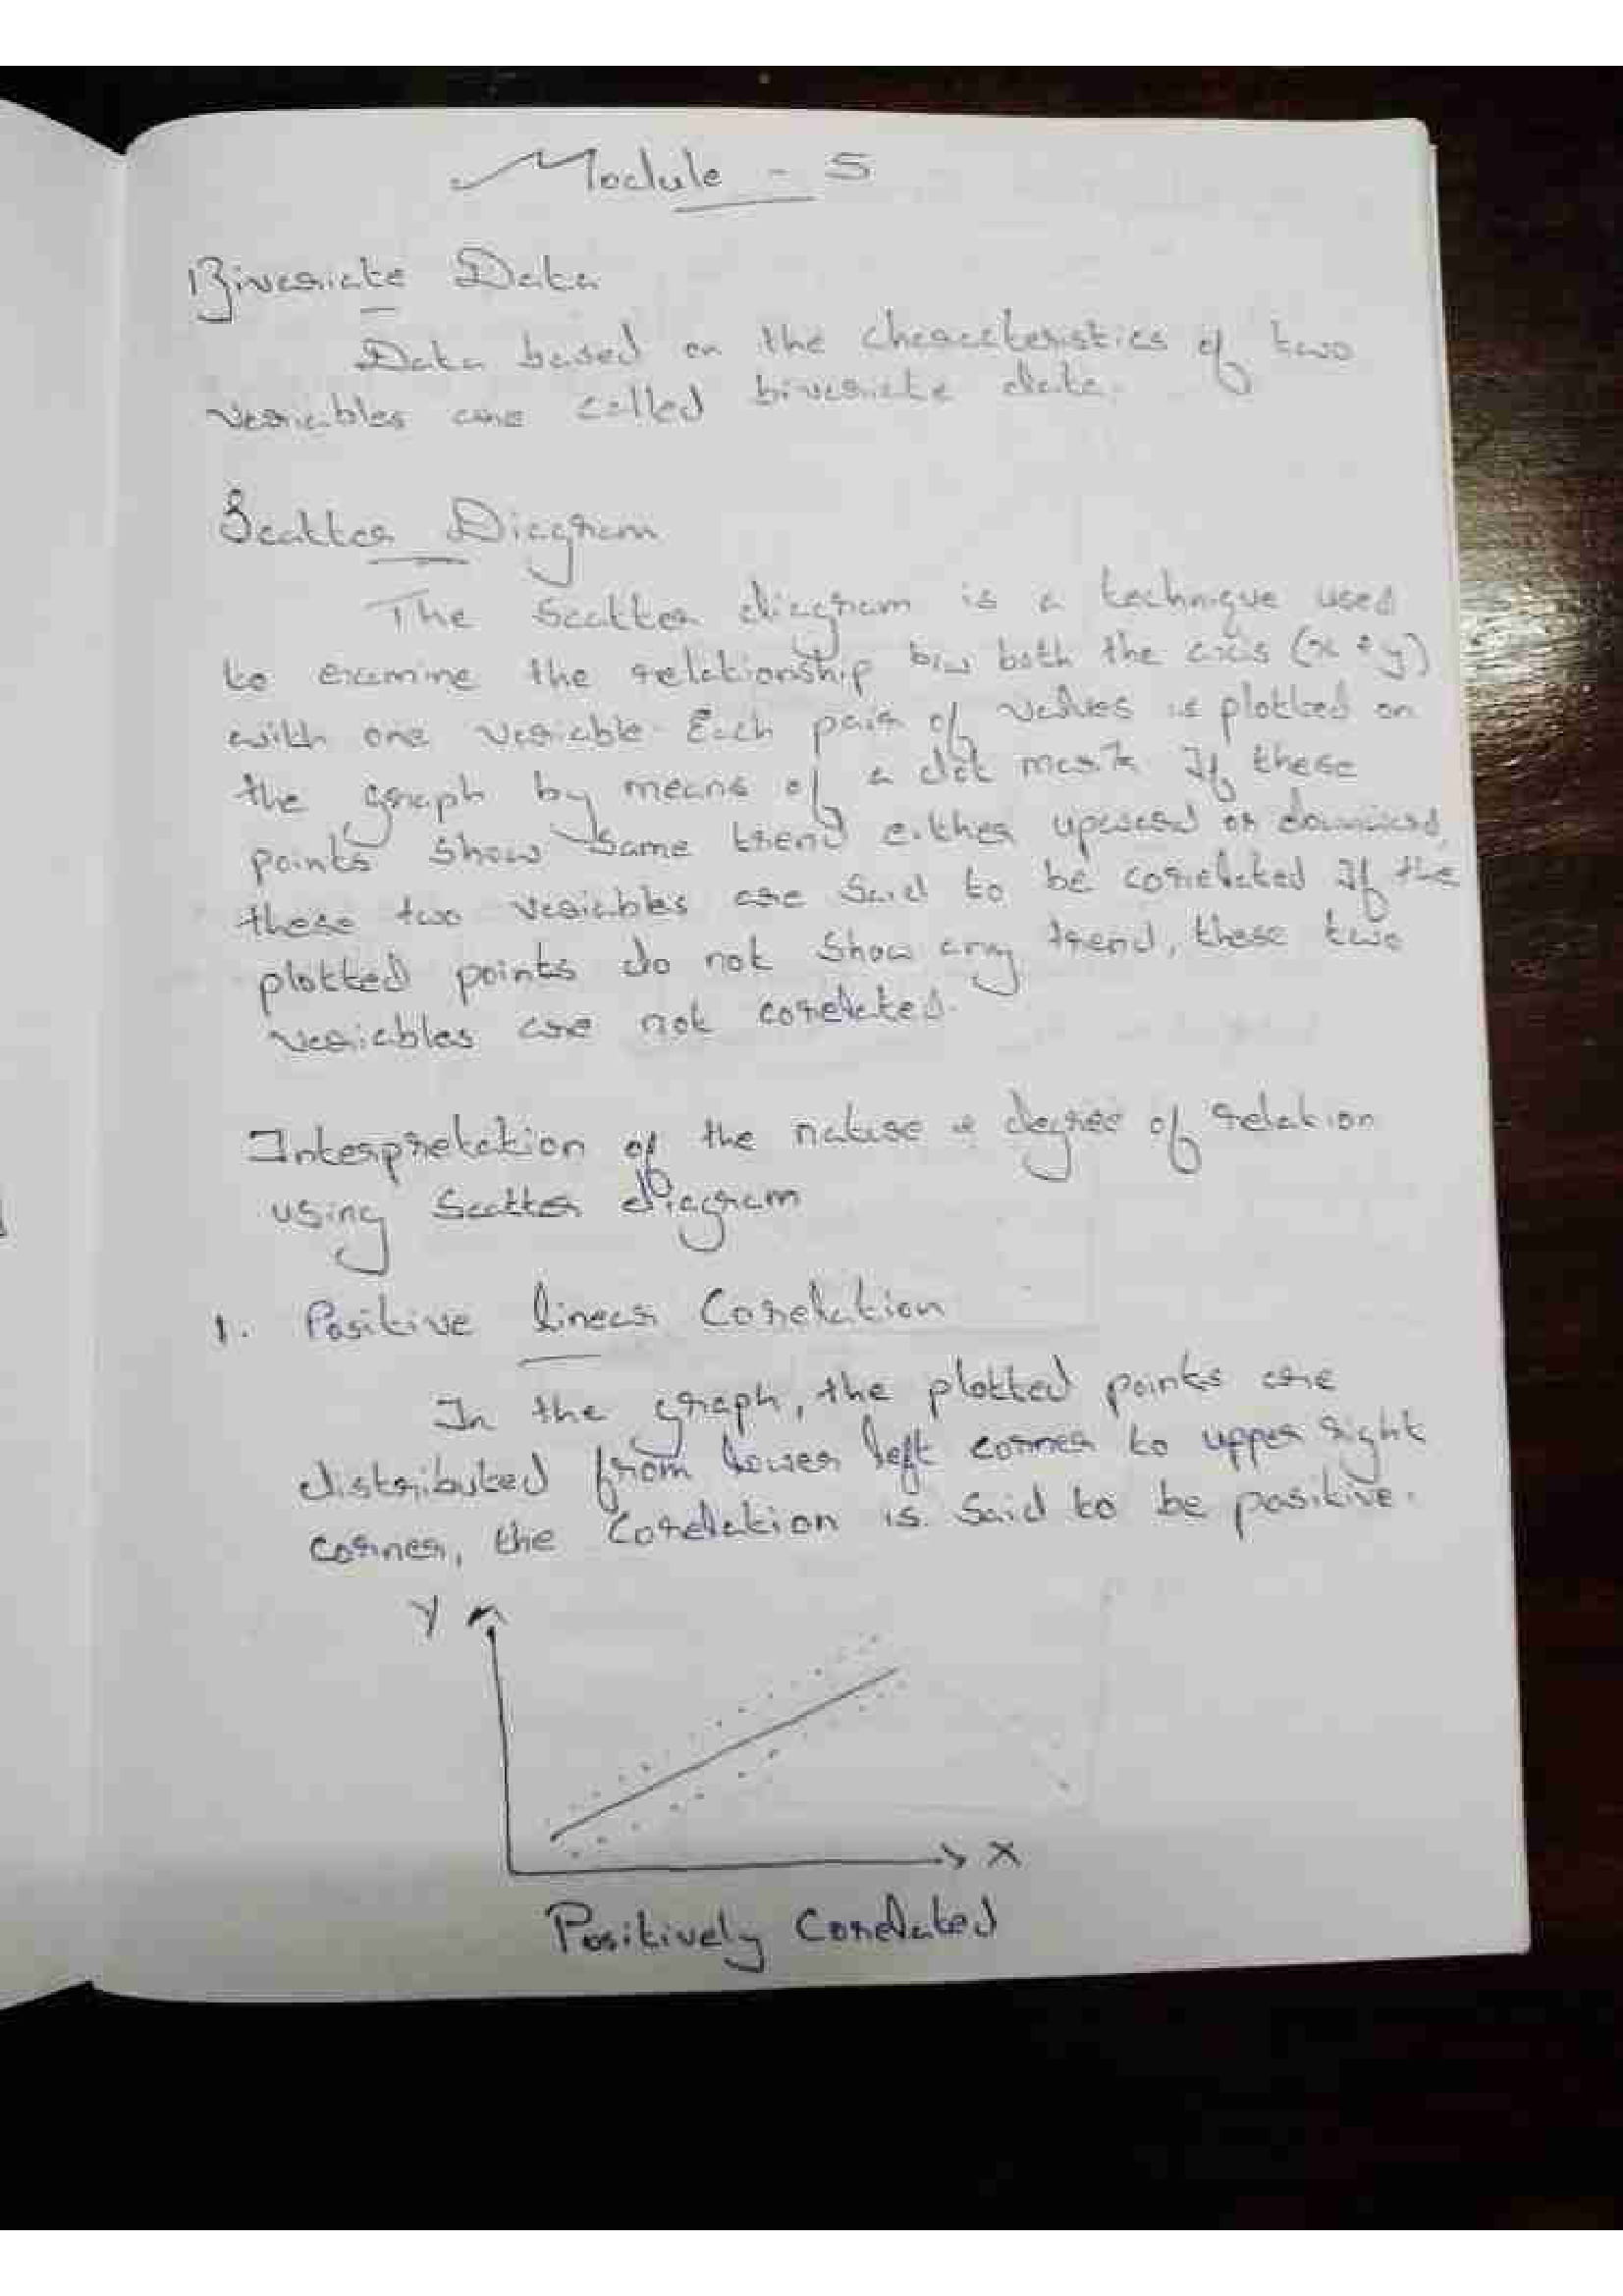 Module - 5
Bivariate Data
Data based on the characteristics of two
variables are called bivariate data.
Scatter Diagram
The Scatter diagram is a technique used
to examine the relationship b/w both the axis (x & y)
with one variable. Each pair of values is plotted on
the graph by means of a dot mark. If these
points show same trend either upward or downward,
these two variables are said to be corelated If the
plotted points do not show any trend, these two
variables are not corelated.
Interpretation of the nature & degree of relation
using Scatter diagram
1. Positive linear Corelation
In the graph, the plotted points are
distributed from lower left corner to upper right
corner, the Corelation is said to be positive.
Y
X
Positively Corelated